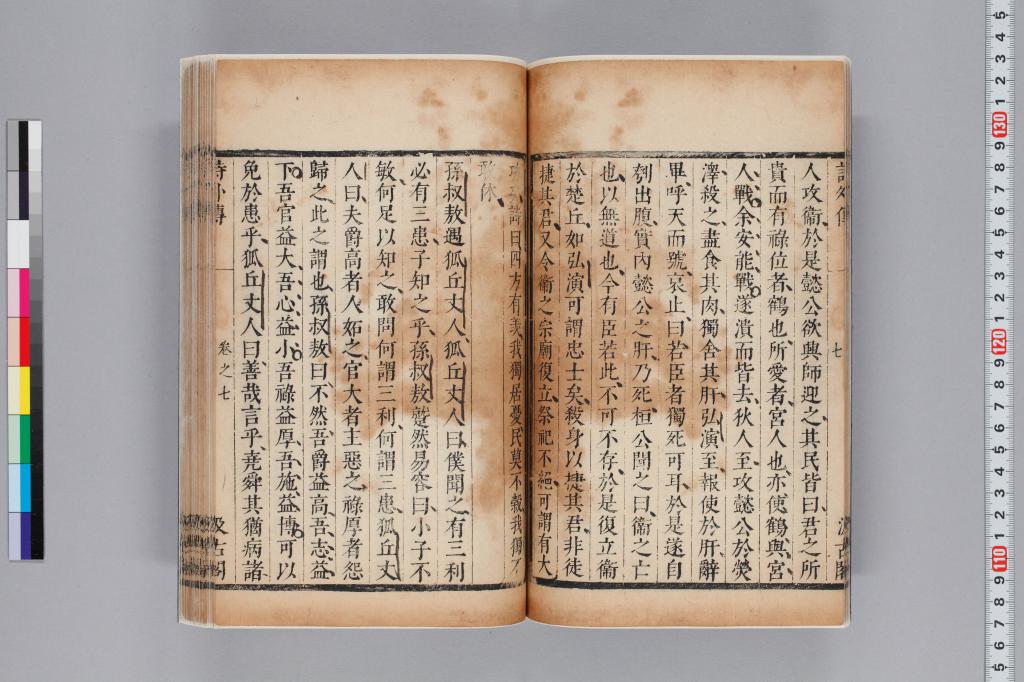 人攻衞於是懿公欲興師迎之其民皆曰君之所
貴而有祿位者鶴也所愛者宮人也亦使鶴與宮
人戰余安能戰遂潰而皆去狄人至攻懿公於熒
澤殺之盡食其肉獨舍其肝弘演至報使於肝辭
畢呼天而號哀止曰若臣者獨死可耳於是遂自
刳出腹實內懿公之肝乃死桓公聞之曰衞之亡
也以無道也今有臣若此不可不存於是復立衞
於楚丘如弘演可謂忠士矣殺身以捷其君非徒
捷其君又令衞之宗廟復立祭祀不絕可謂有大
功矣詩曰四方有羨我獨居憂民莫不穀我獨不
敢休
孫叔敖遇狐丘丈人狐丘丈人曰僕聞之有三利
必有三患子知之乎孫叔敖蹵然易容曰小子不
敏何足以知之敢問何謂三利何謂三患狐丘丈
人曰夫爵高者人妬之官大者主惡之祿厚者怨
歸之此之謂也孫叔敖曰不然吾爵益高吾志益
下吾官益大吾心益小吾祿益厚吾施益博可以
免於患乎狐丘丈人曰善哉言乎堯舜其猶病諸
詩外傳
卷之七
汲古閣